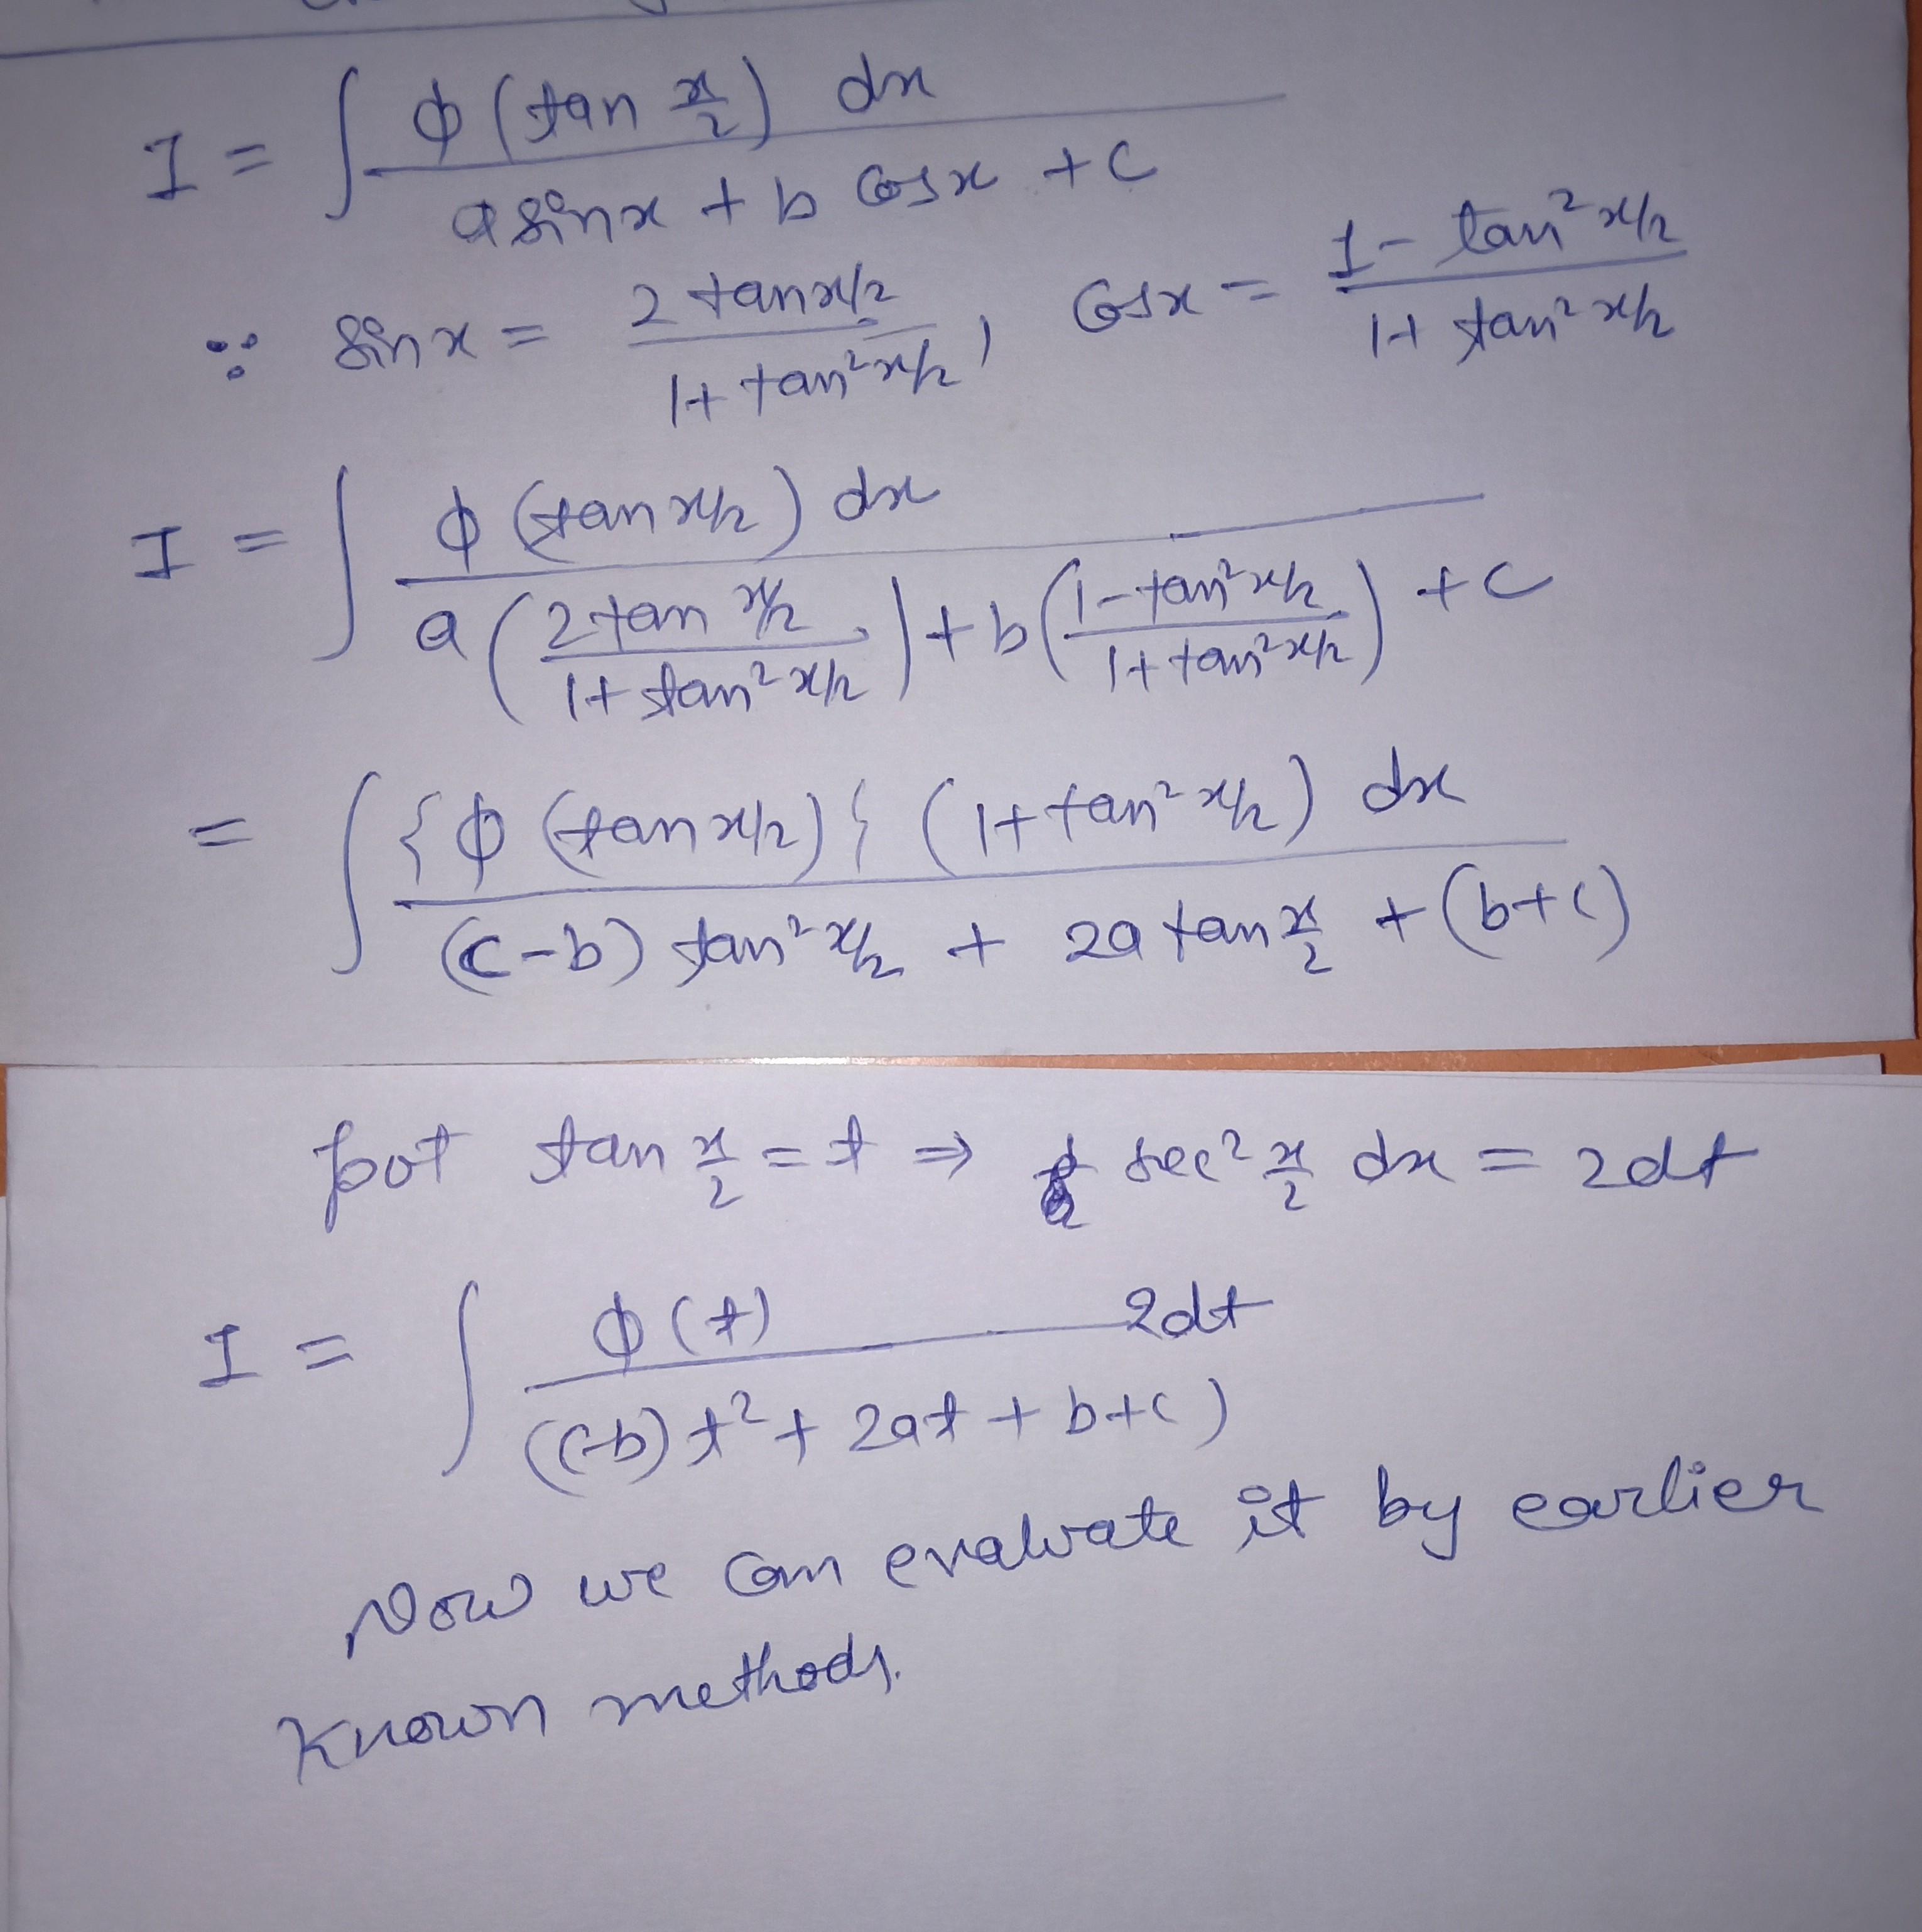 I = ∫ φ(tan x/2) dx / (a sin x + b cos x + c)
∵ sin x = 2 tan x/2 / (1 + tan² x/2), cos x = (1 - tan² x/2) / (1 + tan² x/2)
I = ∫ φ(tan x/2) dx / (a (2 tan x/2 / (1 + tan² x/2)) + b ((1 - tan² x/2) / (1 + tan² x/2)) + c)
= ∫ {φ(tan x/2)} (1 + tan² x/2) dx / ((c-b) tan² x/2 + 2a tan x/2 + (b+c))
put tan x/2 = t ⇒ sec² x/2 dx = 2dt
I = ∫ φ(t) 2dt / ((c-b) t² + 2at + b+c)
Now we can evaluate it by earlier
known methods.